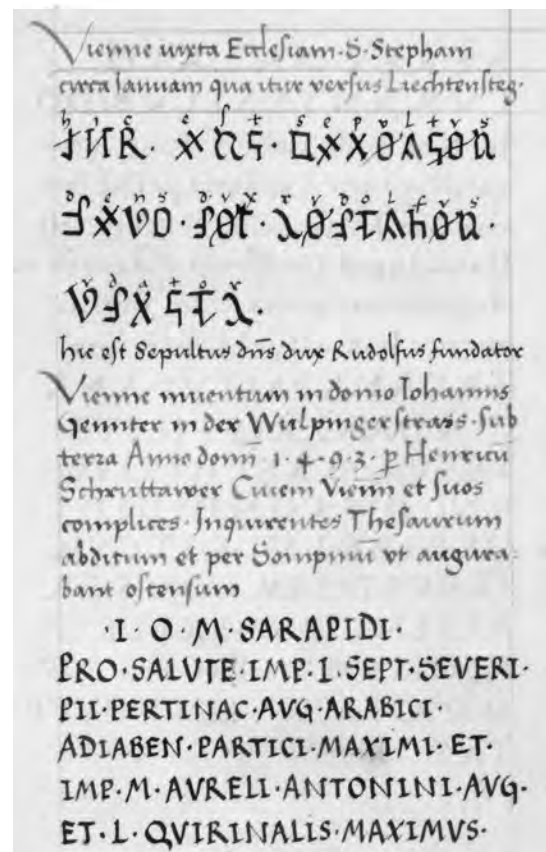 Vienne iuxta Ecclesiam · S · Stephani
circa Ianuam qua itur versus Liechtensteg ·
h i c e ſ t s e p v l t v s
d v x r v d o l f v s
hic est Sepultus dns dux Rudolfus fundator
Vienne inuentum in domo Iohannis
Gennter in der Wulpingerstrass · sub
terra Anno domī · 1 · 4 · 9 · 3 · ꝑ Henricū
Schruttawer Ciuem Vienn̄ et suos
complices · Inquirentes Thesaurum
abditum et per Sompniū vt augura-
bant ostensum
· I · O · M · SARAPIDI ·
PRO · SALVTE · IMP · L · SEPT · SEVERI ·
PII · PERTINAC · AVG · ARABICI ·
ADIABEN · PARTICI · MAXIMI · ET ·
IMP · M · AVRELI · ANTONINI · AVG ·
ET · L · QVIRINALIS · MAXIMVS ·